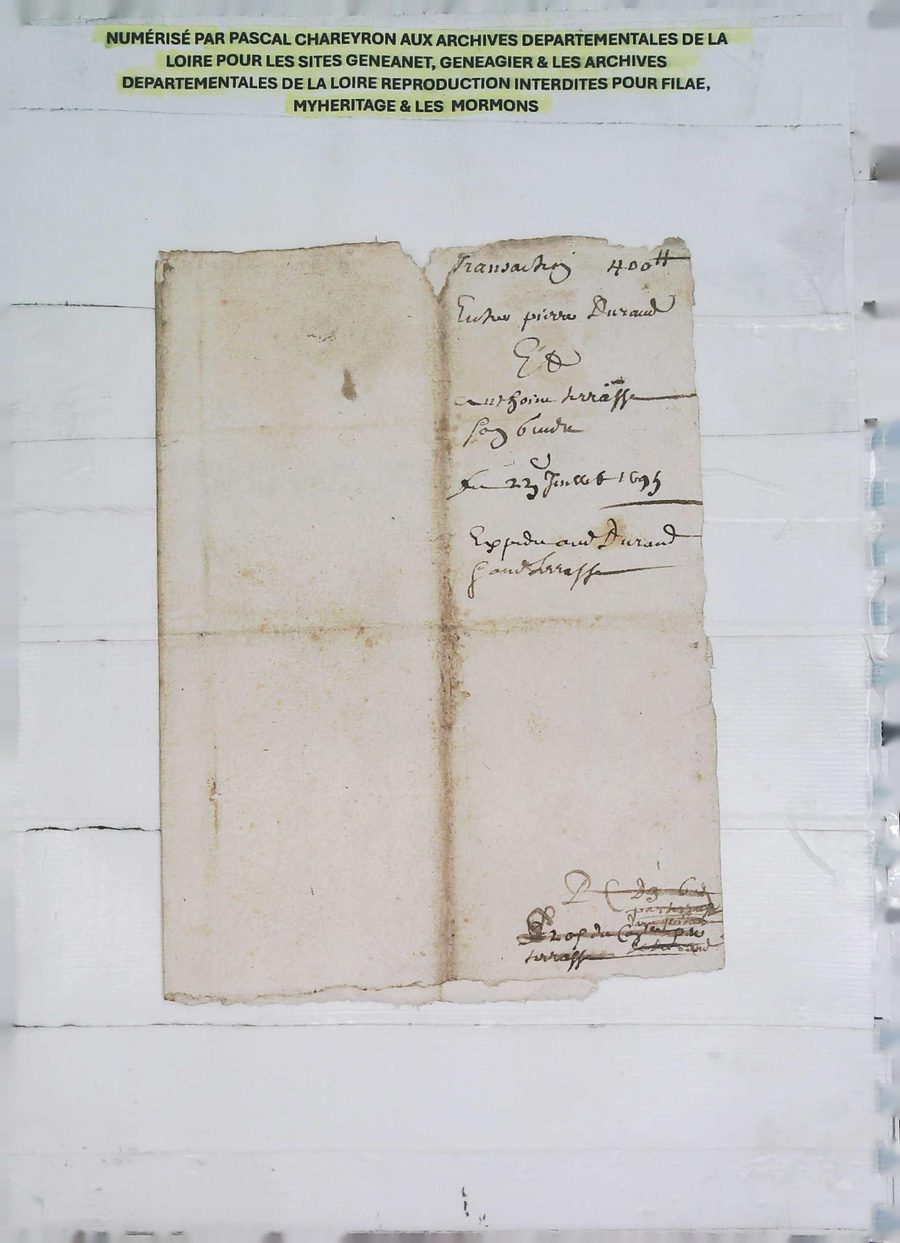 NUMÉRISÉ PAR PASCAL CHAREYRON AUX ARCHIVES DEPARTEMENTALES DE LA
LOIRE POUR LES SITES GENEANET, GENEAGIER & LES ARCHIVES
DEPARTEMENTALES DE LA LOIRE REPRODUCTION INTERDITES POUR FILAE,
MYHERITAGE & LES MORMONS
Transaction 400 tt
Entre pierre Durand
Et
Anthoine terrasse
son gendre
Du 23 Juillet 1695
Expedie aud Durand
& aud terrasse
terrasse